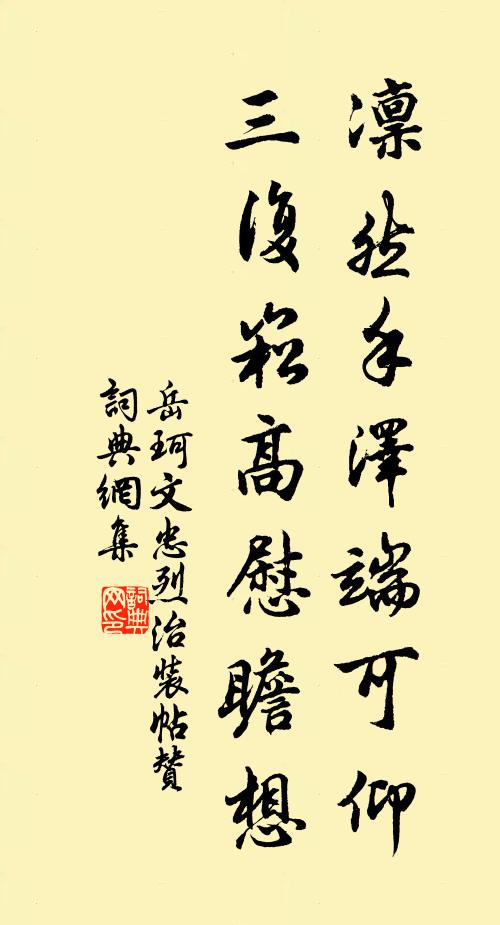 凛然手澤端可仰
三復崧高慰瞻想
岳珂文忠烈治裝帖贊
詞典網集
詞典网印